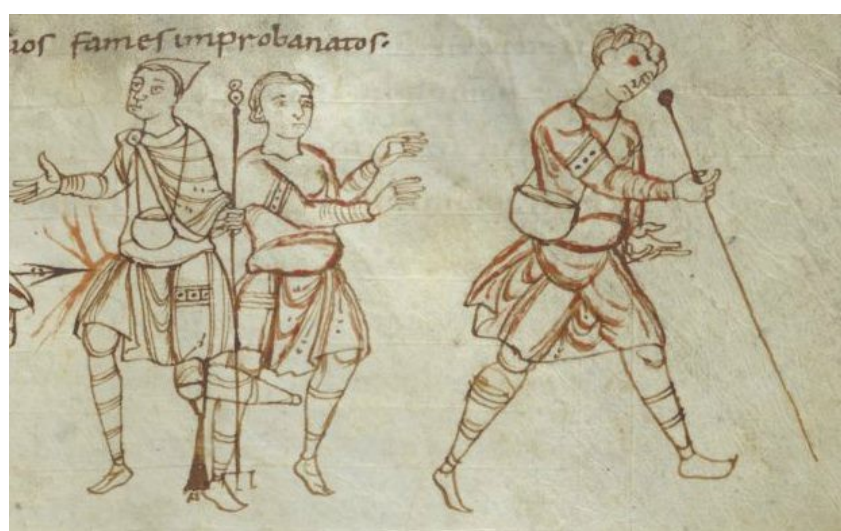 fames improbanatos.